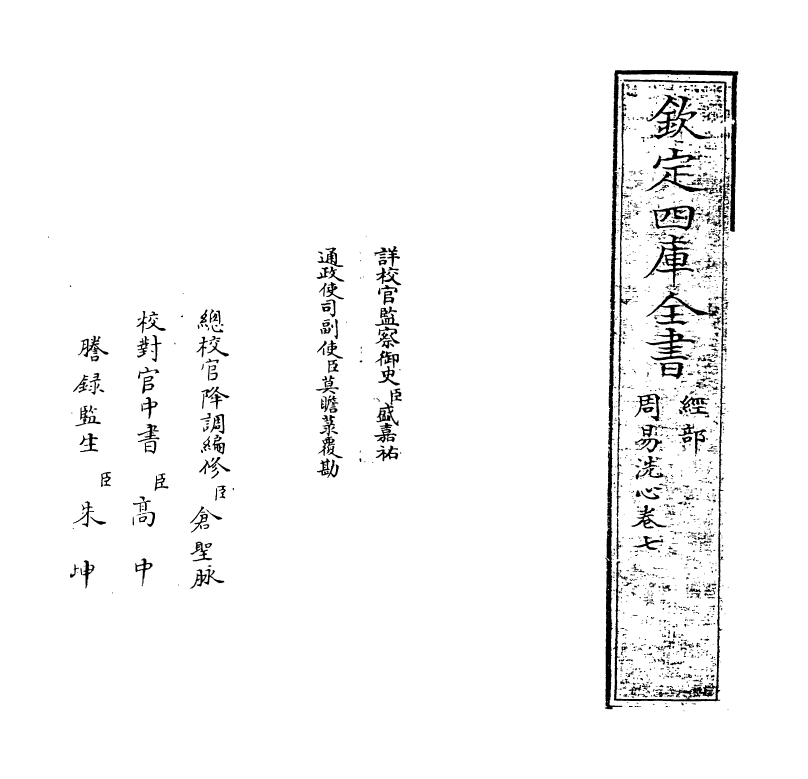 欽定四庫全書
經部
周易洗心卷七
詳校官監察御史臣盛嘉祐
通政使司副使臣莫瞻菉覆勘
總校官降調編修臣倉聖脉
校對官中書臣高中
謄録監生臣朱坤